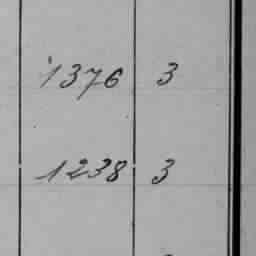 1376 3
1238 3